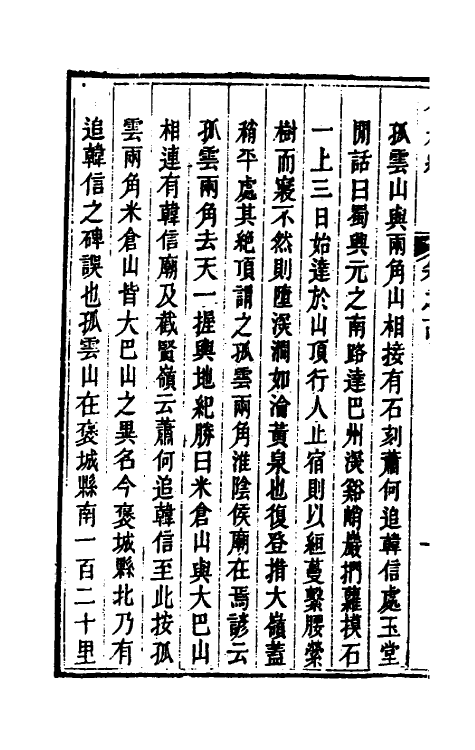 孤雲山與兩角山相接有石刻蕭何追韓信處玉堂
閒話曰蜀興元之南路達巴州深谿峭巖捫蘿摸石
一上三日始達於山頂行人止宿則以縆蔓繫腰縈
樹而寢不然則墮深澗如淪黃泉也復登措大嶺蓋
稍平處其絕頂謂之孤雲兩角淮陰侯廟在焉諺云
孤雲兩角去天一握輿地紀勝曰米倉山與大巴山
相連有韓信廟及截賢嶺云蕭何追韓信至此按孤
雲兩角米倉山皆大巴山之異名今褒城縣北乃有
追韓信之碑誤也孤雲山在褒城縣南一百二十里